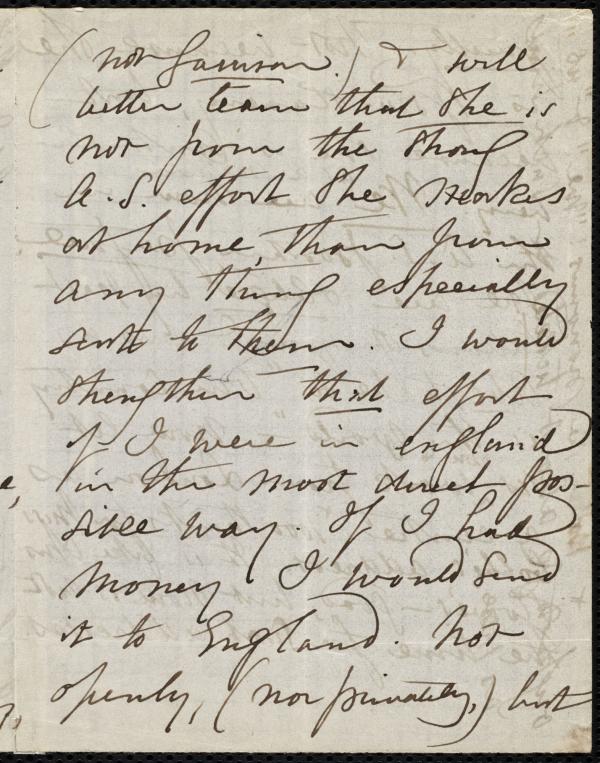 (not Garrison.) & will
better learn that she is
not from the strong
A.S. effort she makes
at home, than from
any thing especially
sent to them. I would
strengthen that effort
if I were in england
in the most direct pos-
sible way. If I had
money I would send
it to England. Not
openly, (nor privately,) but